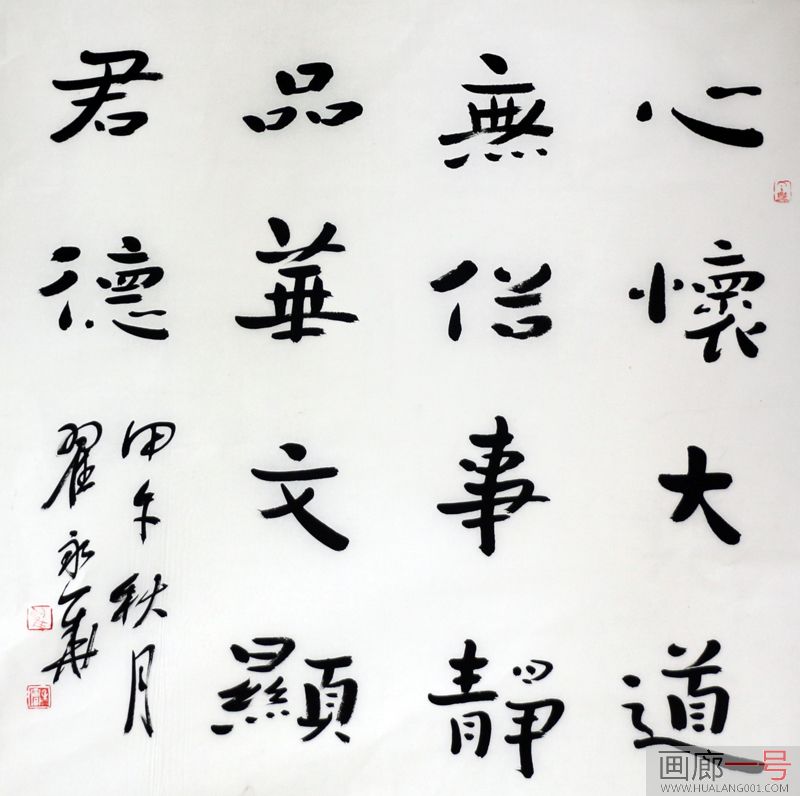 心懷大道
無俗事靜
品華文顯
君德
甲午秋月
翟永華
画廊一号
WWW.HUALANG001.COM